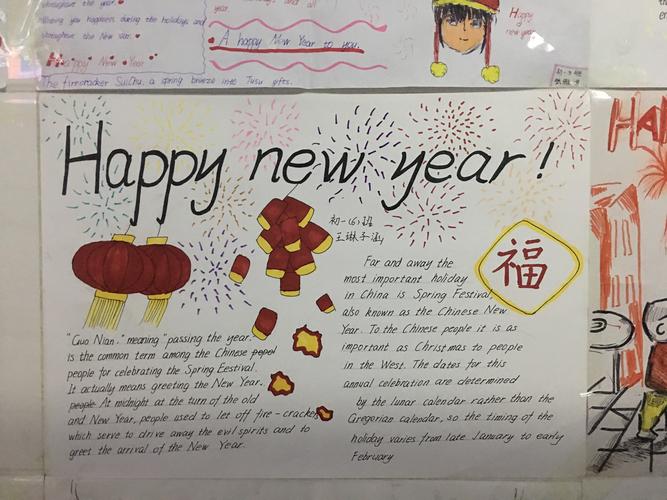 wishing you happiness during the holidays and
throughout the New Year.
Happy New Year
The firecracker SuiChu, a spring breeze into Tusu gifts.
and all
year.
A happy New Year to you.
Happy
new year
Happy new year!
初一(6)班
王琳子涵
福
"Guo Nian." meaning "passing the year.
is the common term among the Chinese
people for celebrating the Spring Festival.
It actually means greeting the New Year.
people At midnight at the turn of the old
and New Year, people used to let off fire-cracker
which serve to drive away the evil spirits and to
greet the arrival of the New Year.
Far and away the
most important holiday
in China is Spring Festival,
also known as the Chinese New
Year. To the Chinese people it is as
important as Christmas to people
in the West. The dates for this
annual celebration are determined
by the lunar calendar rather than the
Gregorian calendar, so the timing of the
holiday varies from late January to early
February